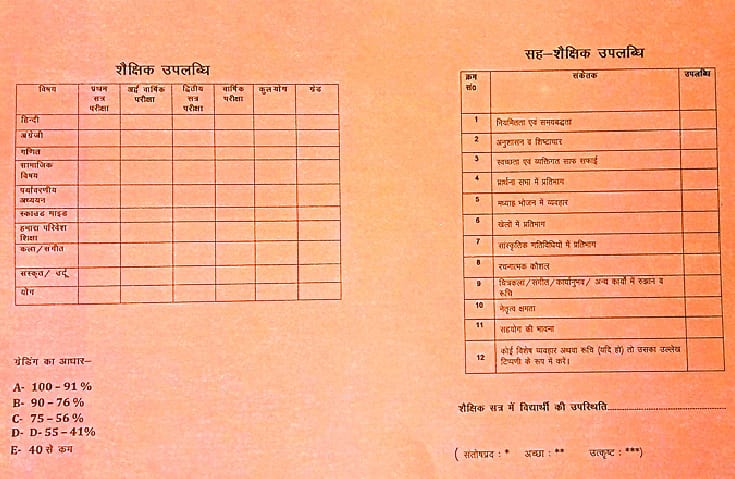 शैक्षिक उपलब्धि
विषय प्रथम सत्र परीक्षा अर्द्व वार्षिक परीक्षा द्वितीय सत्र परीक्षा वार्षिक परीक्षा कुल योग ग्रेड
हिन्दी
अंग्रेजी
गणित
सामाजिक
विषय
पर्यावरणीय
अध्ययन
स्काउड गाइड
हमारा परिवेश
शिक्षा
कला/संगीत
संस्कृत/ उर्दू
योग
ग्रेडिंग का आधार–
A- 100 – 91 %
B- 90 – 76 %
C- 75 – 56 %
D- D- 55 – 41%
E- 40 से कम
सह–शैक्षिक उपलब्धि
क्रम सं० संकेतक उपलब्धि
1 नियमितता एवं समयबद्धता
2 अनुशासन व शिष्टाचार
3 स्वच्छता एवं व्यक्तिगत साफ सफाई
4 प्रार्थना सभा में प्रतिभाग
5 मध्याह्न भोजन में व्यवहार
6 खेलों में प्रतिभाग
7 सांस्कृतिक गतिविधियों में प्रतिभाग
8 रचनात्मक कौशल
9 चित्रकला/संगीत/कार्यानुभव/ अन्य कार्यो में रुझान व
रूचि
10 नेतृत्व क्षमता
11 सहयोग की भावना
12 कोई विशेष व्यवहार अथवा रूचि (यदि हो) तो उसका उल्लेख
टिप्पणी के रूप में करें।
शैक्षिक सत्र में विद्यार्थी की उपस्थिति
( संतोषप्रद : * अच्छा : ** उत्कृष्ट : ***)